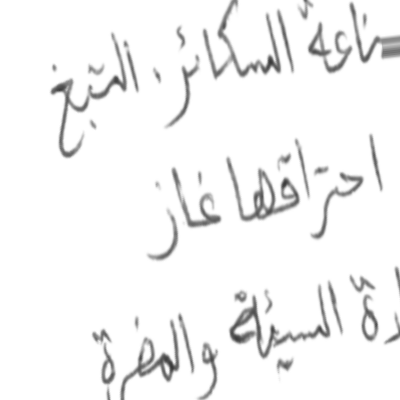 ناعة السكائر. التبغ
احتراقها غاز
دة السيئة والمضرة